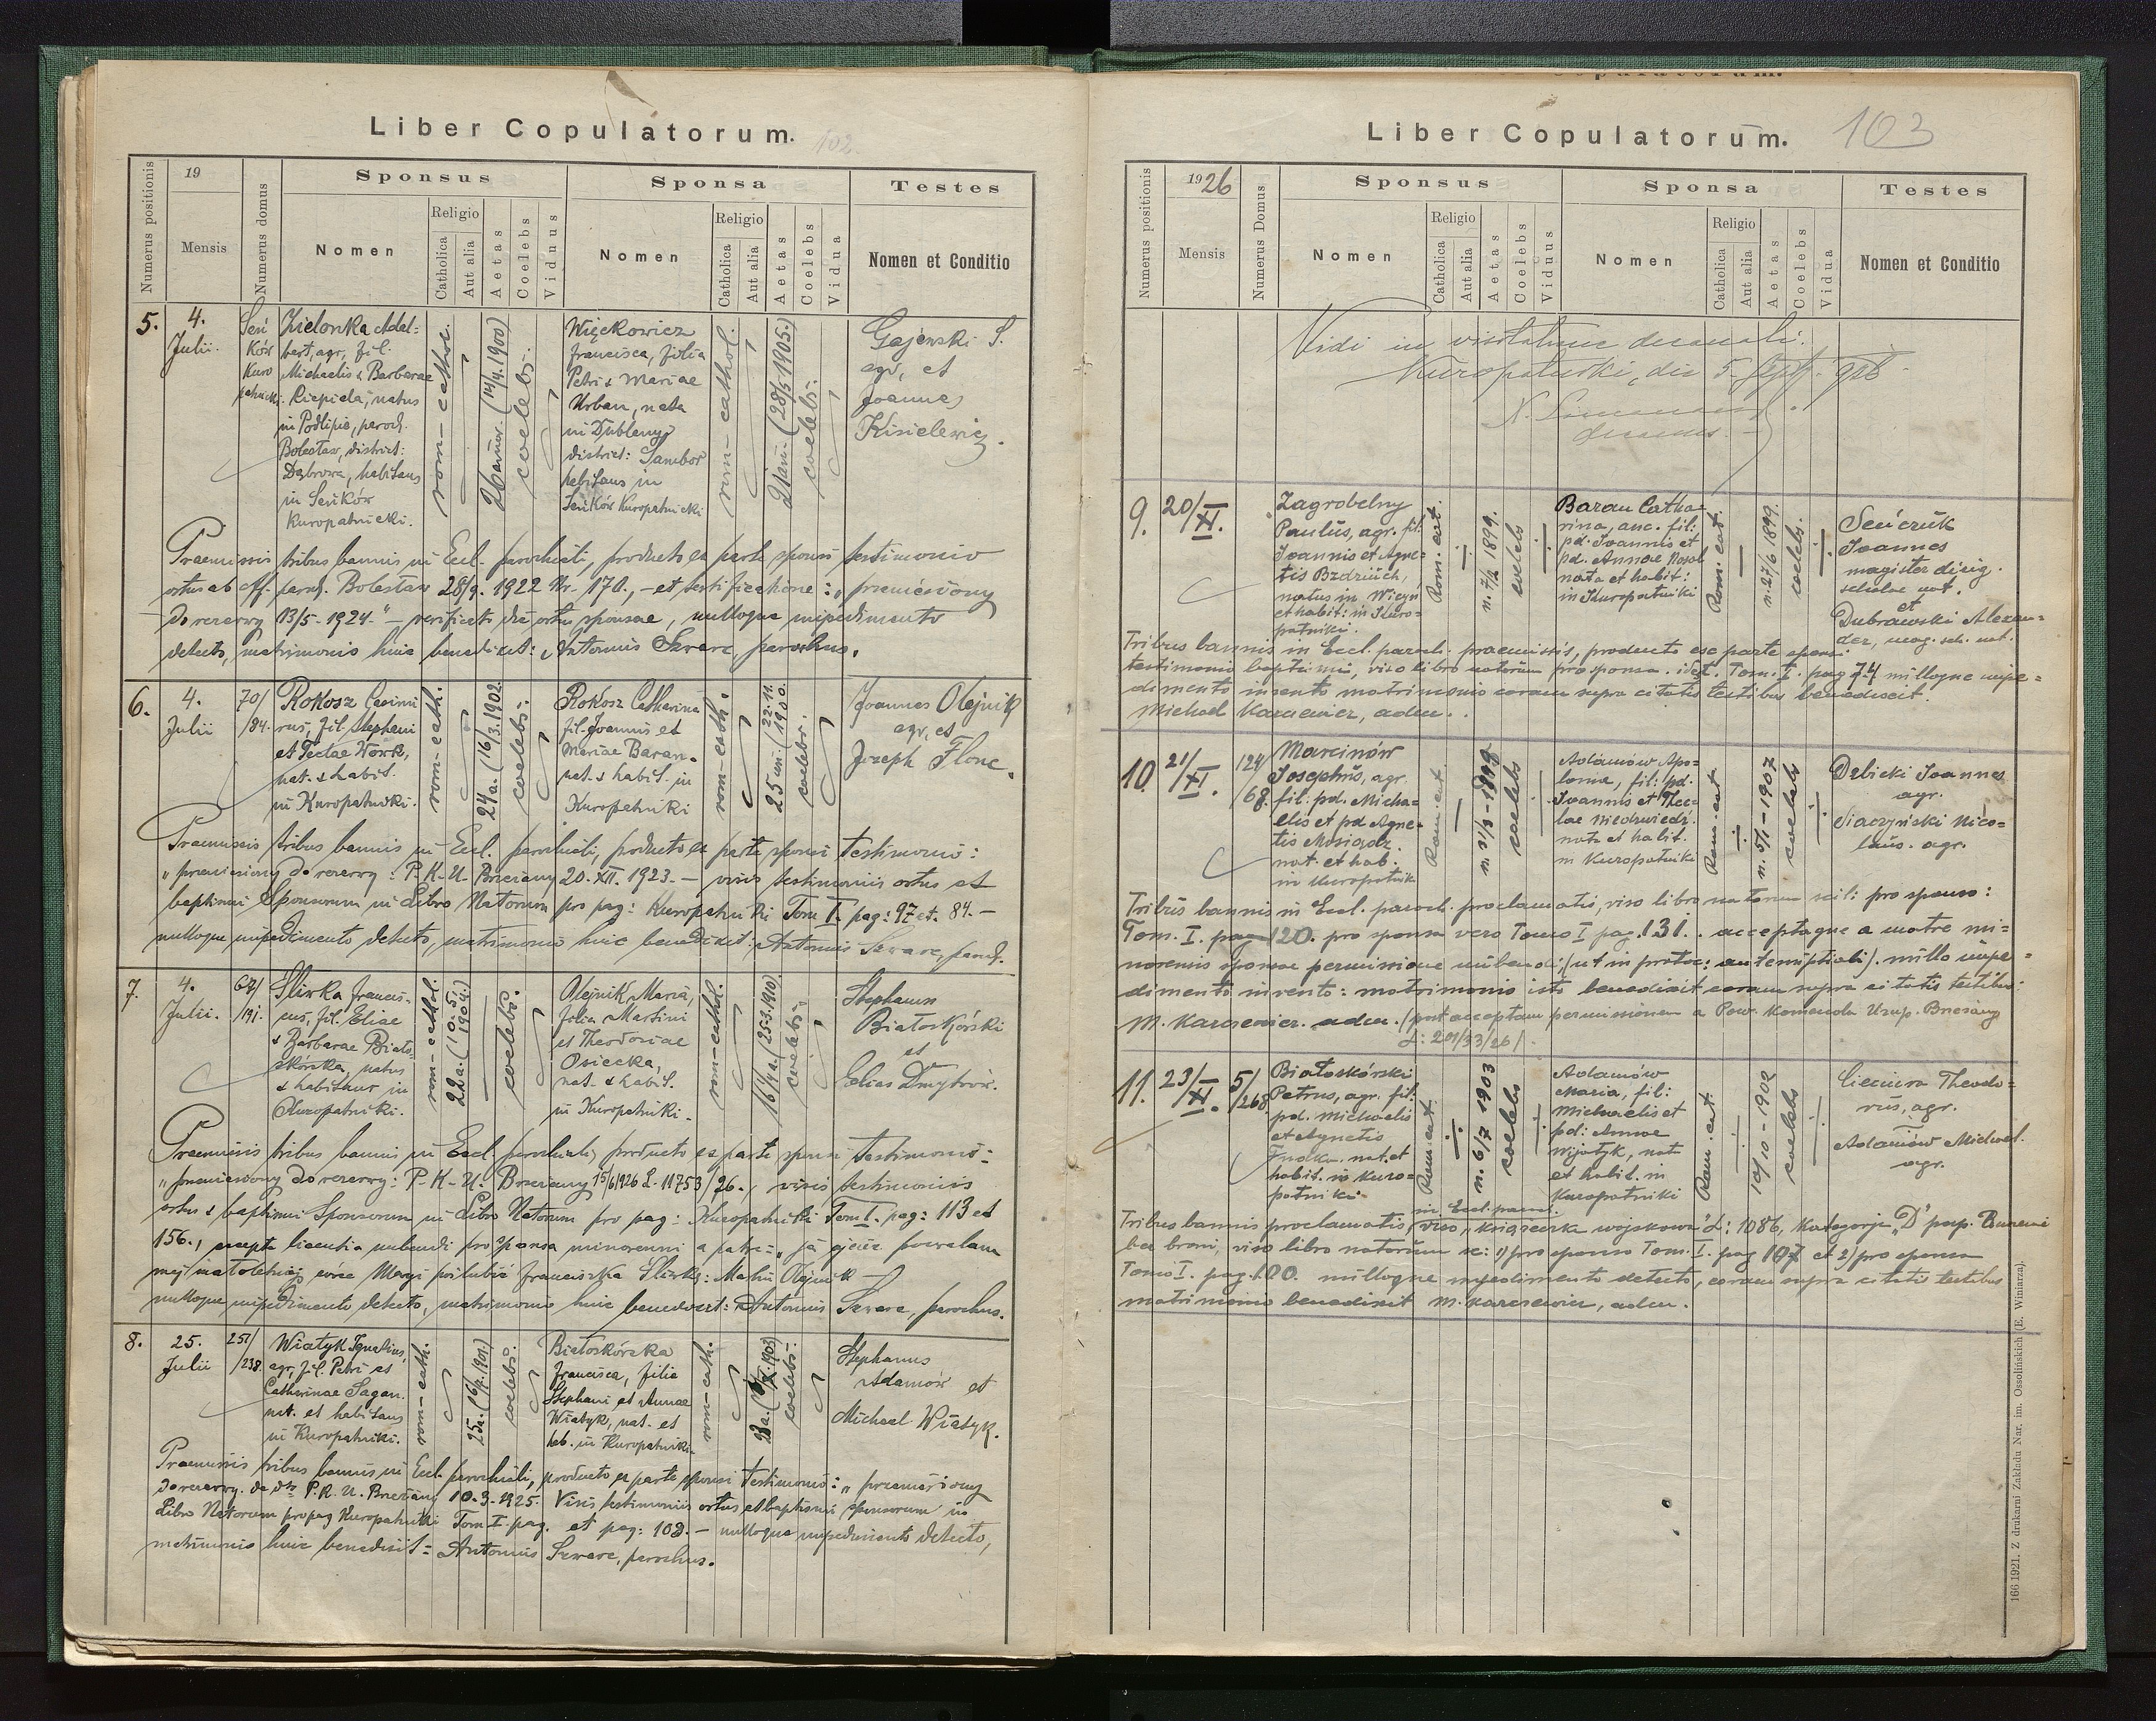 Liber Copulatorum.
102
Numerus positionis
19
Mensis
Numerus domus
Sponsus
Nomen
Religio
Catholica
Aut alia
Aetas
Coelebs
Viduus
Sponsa
Nomen
Religio
Catholica
Aut alia
Aetas
Coelebs
Vidua
Testes
Nomen et Conditio
5.
4.
Julii.
Sień
Kór
Kuro
patnicki
Zielonka Adal=
bert, agr, fil.
Michaelis & Barbarae
Rzepiela, natus
in Podlipie, paroch.
Bolesław, district:
Dąbrowa, habitans
in Sieńkór
Kuropatnicki.
rom-cathol.
26 annor. (14/4.1900)
coelebs.
Więckowicz
Francisca, filia
Petri & Mariae
Urban, nata
in Dublany
district: Sambor
habitans in
Sieńkór Kuropatnicki
rom-cathol.
21 ann. (28/5 1905.)
coelebs.
Gajewski S.
agr, et
Joannes
Kisielewicz.
Praemissis tribus bannis in Eccl. parochiali, producto ex parte sponsi testimonio
ortus ab off. paroch. Bolesław 28/9. 1922 Nr. 170., - et certificatione: "przeniesiony
do rezerwy 13/5-1924." - verificato die ortus sponsae, nulloque impedimento
detecto, matrimonio huic benedixit: Antonius Szwarc, parochus.
6.
4.
Julii
70/
/84.
Rokosz Casimi
rus, fil. Stephani
et Teclae Work,
nat. & habit.
in Kuropatniki.
rom-cath.
24 a. (16/3.1902.
coelebs.
Rokosz Catharina
fil. Joannis et
Mariae Baran.
nat. & habit. in
Kuropatniki
rom-cath.
25 an. (22.11. 1900.
coelebs.
Joannes Olejnik
agr, et
Joseph Flonc.
Praemissis tribus bannis in Eccl. parochiali, producto ex parte sponsi testimonio:
"przeniesiony do rezerwy: P-K-U- Brzeżany 20.XII.1923. - visis testimoniis ortus et
baptismi Sponsorum in Libro Natorum pro pag: Kuropatniki Tom I. pag: 97 et. 84. -
nulloque impedimento detecto, matrimonio huic benedixit: Antonius Szwarc, paroch.
7.
4.
Julii.
67/
/191.
Śliwka Francis-
cus, fil. Eliae
& Barbarae Biało-
skórska, natus
& habitans in
Kuropatniki.
rom-cathol.
22 a. (10.5. 1904.)
coelebs.
Olejnik Maria,
filia Martini
et Theodoziae
Osiecka,
nat. & habit.
in Kuropatniki.
rom-cathol.
16 1/4 a. (25.3.1910)
coelebs.
Stephanus
Białoskórski
et
Elias Dmytrów.
Praemissis tribus bannis in Eccl. parochiali, producto ex parte sponsi testimonio:
"przeniesiony do rezerwy: P-K-U- Brzeżany 15/6 1926 L. 11753/26., visis testimoniis
ortus & baptismi Sponsorum in Libro Natorum pro pag: Kuropatniki Tom I. pag: 113 et
156., accepta licentia nubendi pro sponsa minorenni a patre: "ja ojciec pozwalam
mej małoletniej córce Maryi poślubić Franciszka Śliwkę: Marcin Olejnik -
nulloque impedimento detecto, matrimonio huic benedixit: Antonius Szwarc, parochus.
8.
25.
Julii
257/
/238
Wiatyk Ignatius,
agr, fil. Petri et
Catharinae Sagan.
nat. et habitans
in Kuropatniki.
rom-cath.
25 a.
coelebs.
Białoskórska
Francisca, filia
Stephani et Annae
Wiatyk, nat. et
hab. in Kuropatniki.
rom-cath.
coelebs.
Stephanus
Adamów et
Michael Wiatyk.
Praemissis tribus bannis in Eccl. parochiali, producto ex parte sponsi testimonio: "przeniesiony
do rezerwy. P.K.U. Brzeżany 10.3.1925. Visis testimoniis ortus et baptismi sponsorum in
Libro Natorum pro pag Kuropatniki Tom I. pag. et pag: 108. - nulloque impedimento detecto,
matrimonio huic benedixit: Antonius Szwarc, parochus.
Liber Copulatorum.
103
Numerus positionis
1926
Mensis
Numerus Domus
Sponsus
Nomen
Religio
Catholica
Aut alia
Aetas
Coelebs
Viduus
Sponsa
Nomen
Religio
Catholica
Aut alia
Aetas
Coelebs
Vidua
Testes
Nomen et Conditio
Vidi in visitatione decanali.
Kuropatniki, die 5 Sept. 926
decanus.
9.
20/
XI.
Zagrobelny
Paulus, agr. fil:
Joannis et Agne=
tis Bzdziuch,
natus in Wicyń
et habit: in Kuro=
patniki.
Rom. cat.
n. 7/2 1899.
coelebs
Baran Catha
rina, anc. fil:
pd. Joannis et
pd. Annae Nosal
nata et habit:
in Kuropatniki
Rom. cat.
n. 27/6 1899.
coelebs.
Sieńczuk
Joannes
magister dirig.
scholae nat.
et
Dubrawski Alexan=
der, mag. sch. nat.
Tribus bannis in Eccl. paroch. praemissis, producto ex parte sponsi
testimonio baptismi, viso libro natorum pro sponsa. id est. Tom. I. pag 74 nulloque impe=
dimento invento matrimonio coram supra citatis testibus benedixit.
Michael Karasewicz, adm.
10.
21/
XI.
124/
68.
Marcinów
Josephus, agr.
fil: pd. Micha=
elis et pd Agne=
tis Mosiądz.
nat. et hab.
in Kuropatniki
Rom. cat.
coelebs
Adamów Apo=
lonia, fil: pd.
Joannis et Thec=
lae Niedźwiedź.
nata et habit.
in Kuropatniki
Rom. cat.
n. 5/1-1907
coelebs
Dębicki Joannes
agr.
Siarzyński Nico=
laus. agr.
Tribus bannis in Eccl. paroch. proclamatis, viso libro natorum scil: pro sponso:
Tom. I. pag 120. pro sponsa vero Tomo I pag. 131. acceptaque a matre mi=
norennis sponsae permissione nubendi, (ut in protoc: antenuptiali). nullo impe=
dimento invento: matrimonio isto benedixit coram supra citatis testibus:
M. Karasewicz. adm. (post acceptam permissionem a Pow. Komenda Uzup. Brzeżany
L: 201/33/26/.
11.
23/
XI.
5/
/268
Białoskórski
Petrus, agr. fil:
pd. Michaelis
et Agnetis
nat. et
habit. in Kuro=
patniki.
Rom. cat.
n. 6/7 1903
coelebs
Adamów
Maria, fil:
Michaelis et
pd: Annae
Wijatyk, nata
et habit. in
Kuropatniki
Rom. cat.
10/10-1902
coelebs
Cieciura Theodo=
rus, agr.
Adamów Michael.
agr.
in Eccl. paroch.
Tribus bannis proclamatis, viso "książeczka wojskowa" L: 1086, Kategorja "D" posp. Ruszenie
bez broni, viso libro natorum sc: 1) pro sponso Tom. I. pag 107 et 2) pro sponsa
Tomo I. pag. 100. nulloque impedimento detecto, coram supra citatis testibus
matrimonio benedixit M. Karasewicz, adm.
166 1921. Z drukarni Zakładu Nar. im. Ossolińskich (E. Winiarza).